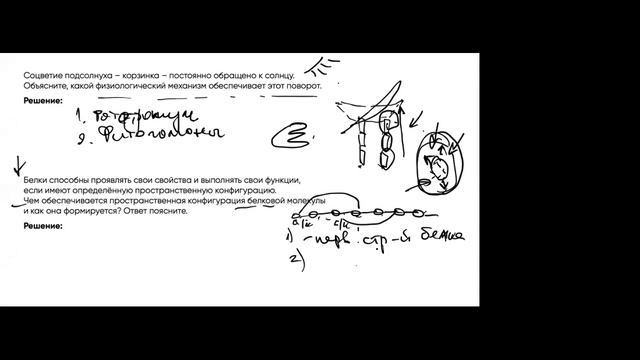 Соцветие подсолнуха – корзинка – постоянно обращено к солнцу.
Объясните, какой физиологический механизм обеспечивает этот поворот.
Решение:
1. Фототропизм
2. Фитогормоны
Белки способны проявлять свои свойства и выполнять свои функции,
если имеют определённую пространственную конфигурацию.
Чем обеспечивается пространственная конфигурация белковой молекулы
и как она формируется? Ответ поясните.
Решение:
а/к а/к
1) - перв. стр-й белка
2)